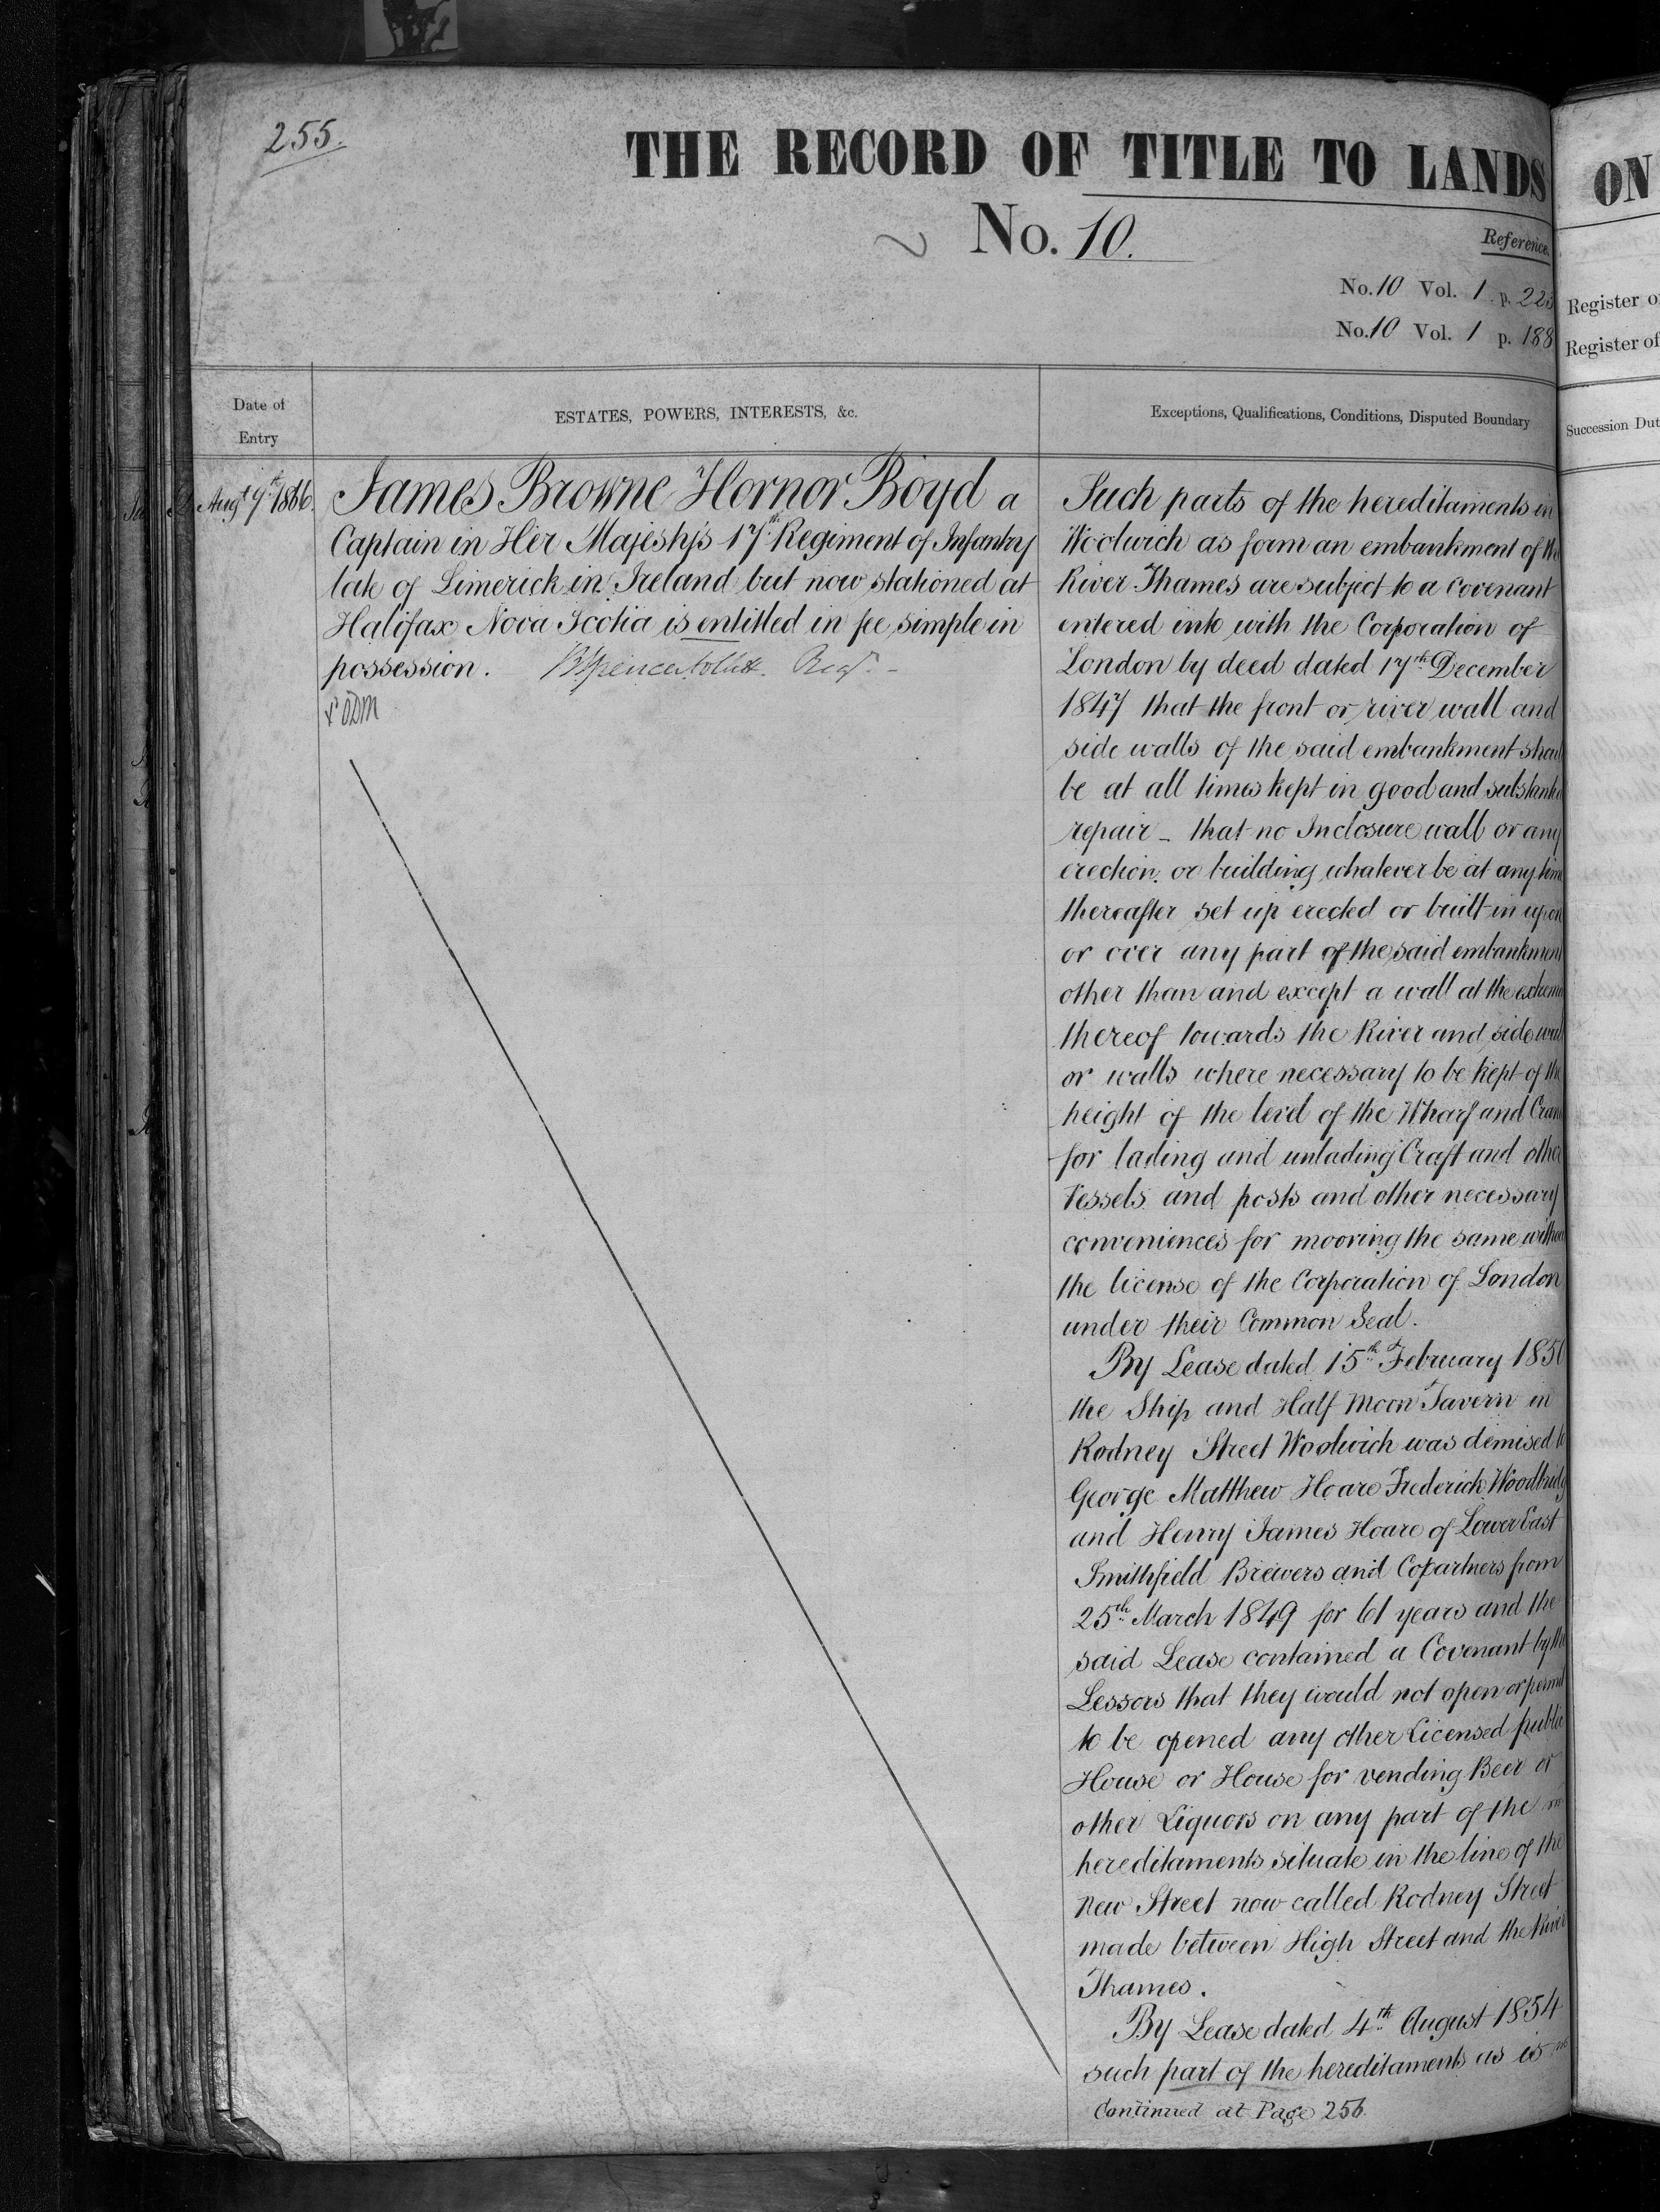 255.
THE RECORD OF TITLE TO LANDS
No. 10.
Reference.
No. 10 Vol. 1. p. 223
No. 10 Vol. 1 p. 188
Date of
Entry
ESTATES, POWERS, INTERESTS, &c.
Exceptions, Qualifications, Conditions, Disputed Boundary
Augt 9th 1866.
James Browne Hornor Boyd a
Captain in Her Majesty's 17th Regiment of Infantry
late of Limerick in Ireland but now stationed at
Halifax Nova Scotia is entitled in fee simple in
possession.
Such parts of the hereditaments in
Woolwich as form an embankment of the
River Thames are subject to a covenant
entered into with the Corporation of
London by deed dated 17th December
1847 that the front or river wall and
side walls of the said embankment shou
be at all times kept in good and substantia
repair - that no Inclosure wall or any
erection or building whatever be at any time
thereafter set up erected or built in upon
or over any part of the said embankment
other than and except a wall at the extrem
thereof towards the River and side wal
or walls where necessary to be kept of the
height of the level of the Wharf and Cran
for lading and unlading Craft and other
Vessels and posts and other necessary
conveniences for mooring the same withou
the license of the Corporation of London
under their Common Seal.
By Lease dated 15th February 1850
the Ship and Half Moon Tavern in
Rodney Street Woolwich was demised to
George Matthew Hoare Frederick Woodbridg
and Henry James Hoare of Lower East
Smithfield Brewers and Copartners from
25th March 1849 for 61 years and the
said Lease contained a Covenant by the
Lessors that they would not open or permit
to be opened any other Licensed public
House or House for vending Beer or
other Liquors on any part of the
hereditaments situate in the line of the
New Street now called Rodney Street
made between High Street and the River
Thames.
By Lease dated 4th August 1854
such part of the hereditaments as is
Continued at Page 256.
ON
Register o
Register of
Succession Dut